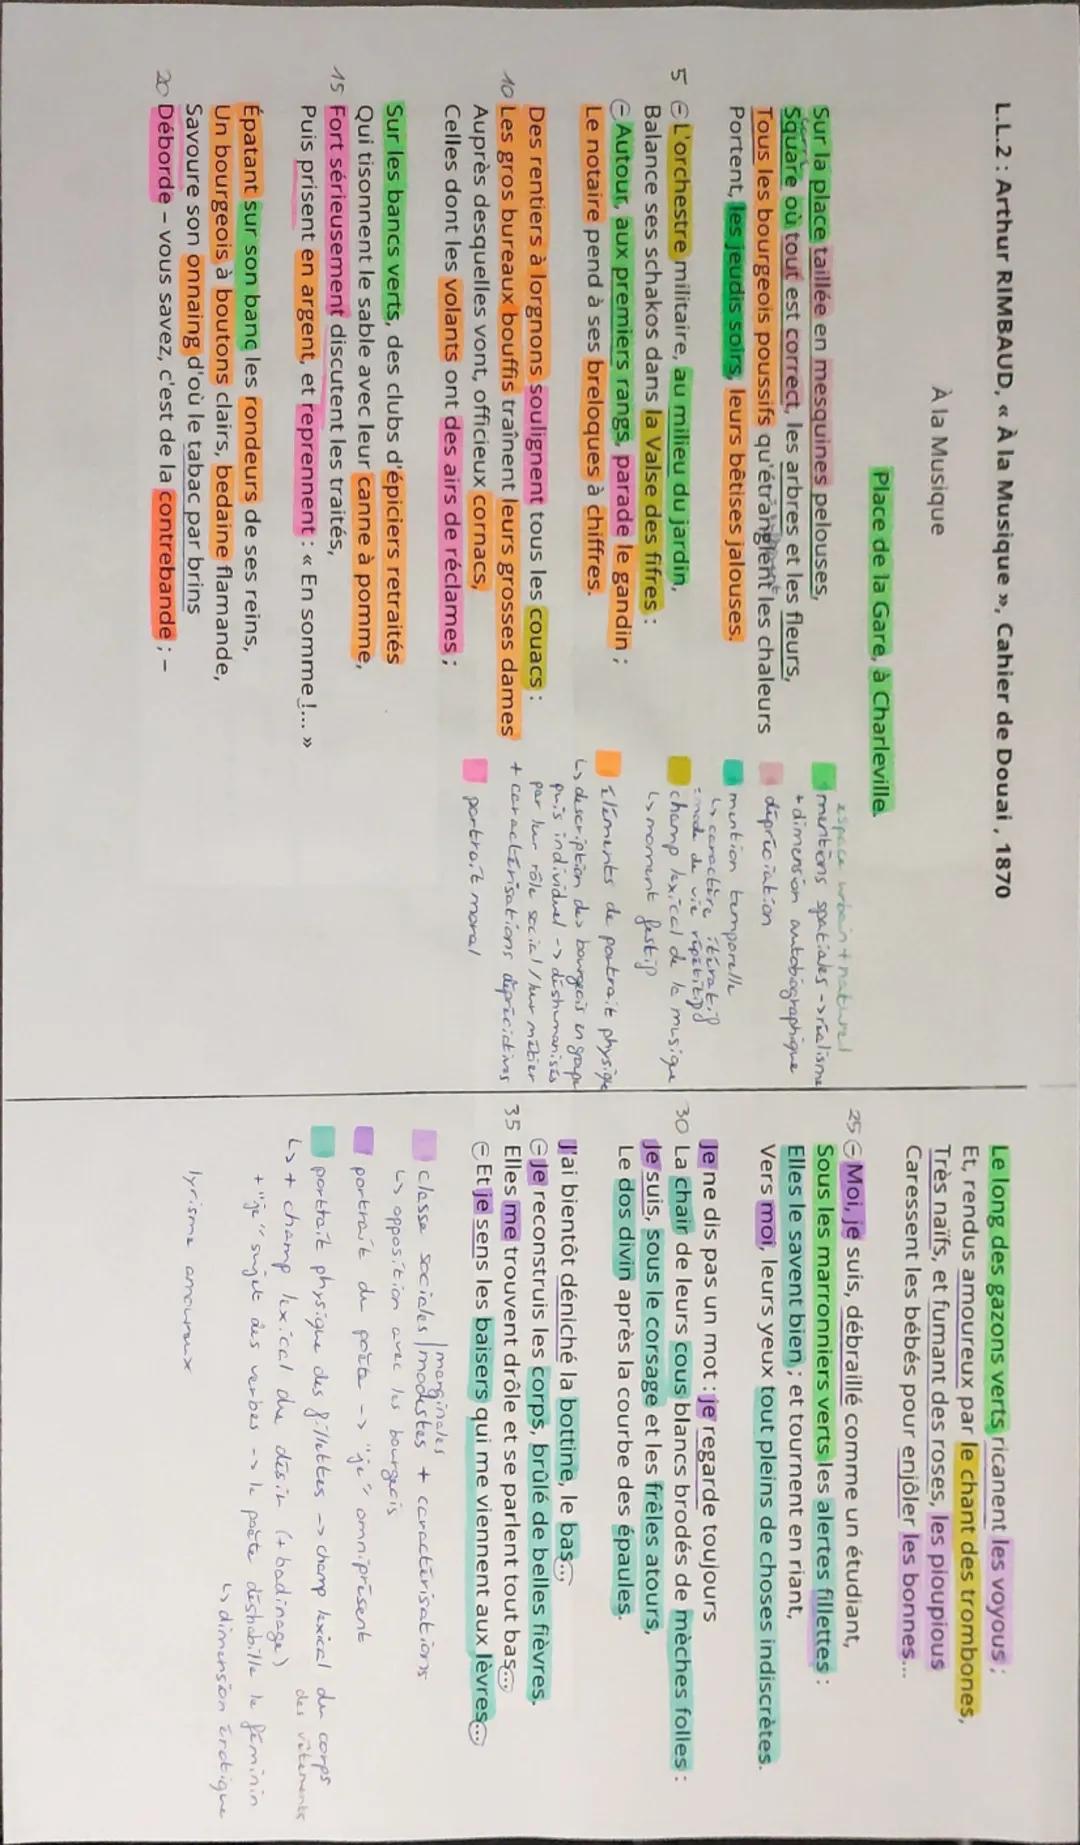 L.L.2 : Arthur RIMBAUD, « À la Musique », Cahier de Douai, 1870
À la Musique
Place de la Gare, à Charleville.
Sur la place taillée en mesquines pelouses,
Square où tout est correct, les arbres et les fleurs,
Tous les bourgeois poussifs qu'étranglent les chaleurs
Portent, les jeudis soirs, leurs bêtises jalouses.
5 L'orchestre militaire, au milieu du jardin,
Balance ses schakos dans la Valse des fifres :
Autour, aux premiers rangs, parade le gandin ;
Le notaire pend à ses breloques à chiffres.
Des rentiers à lorgnons soulignent tous les couacs :
10 Les gros bureaux bouffis traînent leurs grosses dames
Auprès desquelles vont, officieux cornacs,
Celles dont les volants ont des airs de réclames ;
Sur les bancs verts, des clubs d'épiciers retraités
Qui tisonnent le sable avec leur canne à pomme,
15 Fort sérieusement discutent les traités,
Puis prisent en argent, et reprennent : « En somme !... »
Épatant sur son banc les rondeurs de ses reins,
Un bourgeois à boutons clairs, bedaine flamande,
Savoure son onnaing d'où le tabac par brins
20 Déborde – vous savez, c'est de la contrebande ; –
espace urbain + naturel
mentions spatiales -> réalisme
+ dimension autobiographique
dépréciation
mention temporelle
↳ caractère itératif
= mode de vie répétitif
champ lexical de la musique
↳ moment festif
éléments de portrait physique
↳ description des bourgeois en groupe
puis individuel -> déshumanisés
par leur rôle social / leur métier
+ caractérisations dépréciatives
portrait moral
Le long des gazons verts ricanent les voyous ;
Et, rendus amoureux par le chant des trombones,
Très naïfs, et fumant des roses, les pioupious
Caressent les bébés pour enjôler les bonnes...
25 Moi, je suis, débraillé comme un étudiant,
Sous les marronniers verts les alertes fillettes :
Elles le savent bien ; et tournent en riant,
Vers moi, leurs yeux tout pleins de choses indiscrètes.
Je ne dis pas un mot : je regarde toujours
30 La chair de leurs cous blancs brodés de mèches folles :
Je suis, sous le corsage et les frêles atours,
Le dos divin après la courbe des épaules.
J'ai bientôt déniché la bottine, le bas...
Je reconstruis les corps, brûlé de belles fièvres.
35 Elles me trouvent drôle et se parlent tout bas...
Et je sens les baisers qui me viennent aux lèvres...
marginales
classe sociales / modestes + caractérisations
↳ opposition avec les bourgeois
portrait du poète -> "je" omniprésent
portrait physique des fillettes -> champ lexical du corps
des vêtements
↳ + champ lexical du désir (+ badinage)
+ "je" sujet des verbes -> le poète déshabille le féminin
↳ dimension érotique
lyrisme amoureux